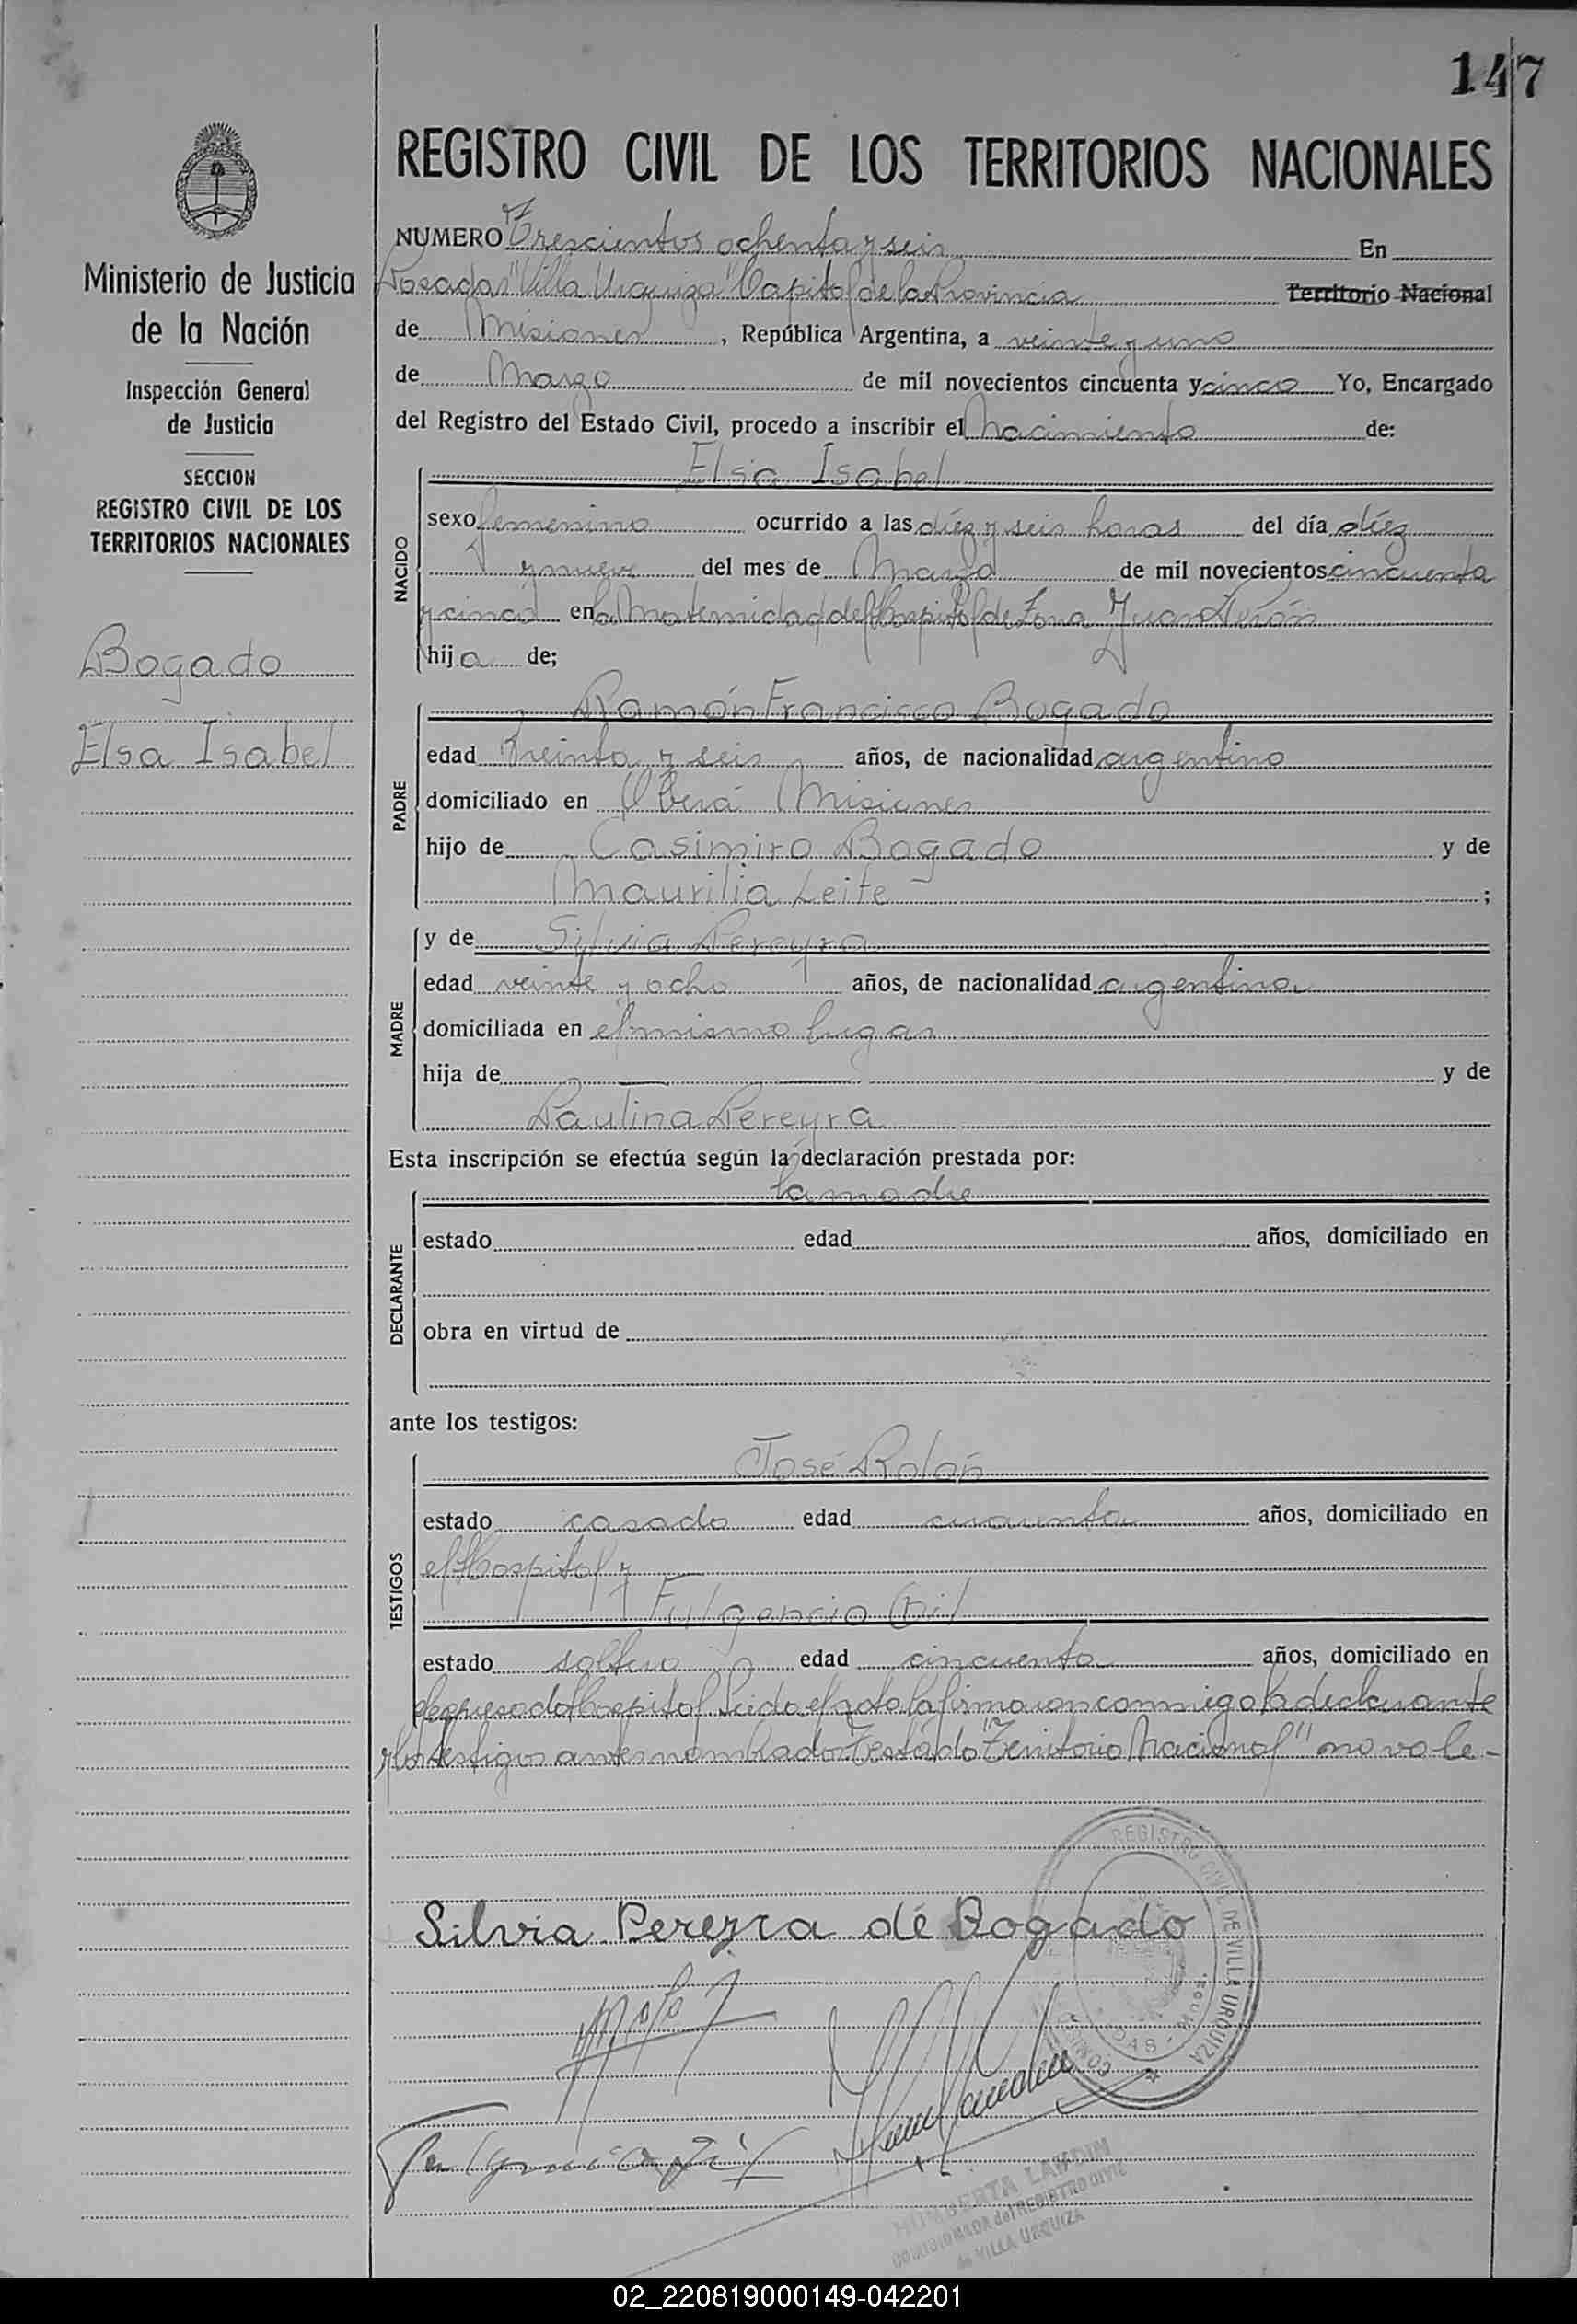 147
REGISTRO CIVIL DE LOS TERRITORIOS NACIONALES
Ministerio de Justicia
de la Nación
Inspección General
de Justicia
SECCION
REGISTRO CIVIL DE LOS
TERRITORIOS NACIONALES
Bogado
Elsa Isabel
NUMERO Trescientos ochenta y seis En
Posadas "Villa Urquiza" Capital de la Provincia Territorio Nacional
de Misiones, República Argentina, a veinte y uno
de Marzo de mil novecientos cincuenta y cinco Yo, Encargado
del Registro del Estado Civil, procedo a inscribir el Nacimiento de:
Elsa Isabel
NACIDO
sexo femenino ocurrido a las diez y seis horas del día diez
y nueve del mes de Marzo de mil novecientos cincuenta
y cinco en la Maternidad del Hospital de Zona Juan Perón
hija de;
Ramón Francisco Bogado
PADRE
edad treinta y seis años, de nacionalidad argentino
domiciliado en Oberá Misiones
hijo de Casimiro Bogado y de
Maurilia Leite ;
MADRE
y de Silvia Pereyra
edad veinte y ocho años, de nacionalidad argentina
domiciliada en el mismo lugar
hija de y de
Paulina Pereyra
Esta inscripción se efectúa según la declaración prestada por:
la madre
DECLARANTE
estado edad años, domiciliado en
obra en virtud de
ante los testigos:
José Rolón
TESTIGOS
estado casado edad cuarenta años, domiciliado en
el Hospital y
Fulgencio Gil
estado soltero edad cincuenta años, domiciliado en
el expresado Hospital. Leida el acta la firmaron conmigo la declarante
y los testigos antes nombrados. Testado "Territorio Nacional" no vale.-
Silvia Pereyra de Bogado
REGISTRO CIVIL DE VILLA URQUIZA
HUMBERTA LANDIN
COMISIONADA del REGISTRO CIVIL
de VILLA URQUIZA
02_220819000149-042201